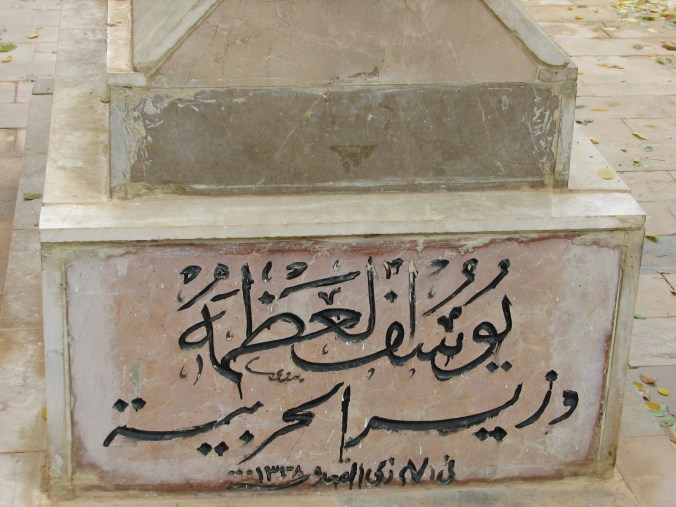 يوسف العظمة
وزير الحربية
في ٨ ذي القعدة سنة ١٣٣٨